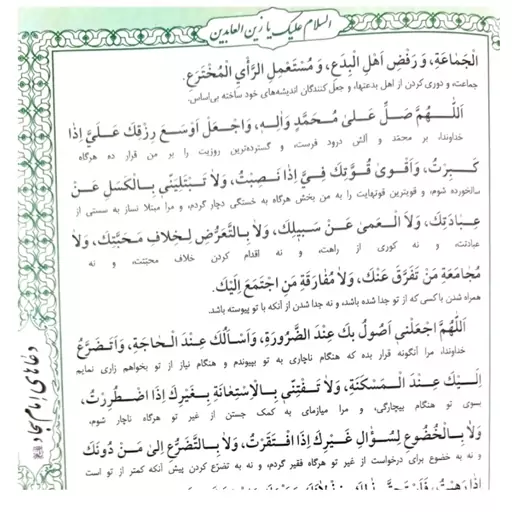 السلام علیک یا زین العابدین
الْجَمَاعَةِ، وَ رَفْضِ اَهْلِ الْبِدَعِ، وَ مُسْتَعْمِلِ الرَّأْيِ الْمُخْتَرَعِ.
جماعت، و دوری کردن از اهل بدعتها، و جعل کنندگان اندیشه‌های خود ساخته بی‌اساس.
اَللّٰهُمَّ صَلِّ عَلىٰ مُحَمَّدٍ وَالِهِ، وَاجْعَلْ اَوْسَعَ رِزْقِكَ عَلَيَّ اِذٰا
خداوندا، بر محمّد و آلش درود فرست، و گسترده‌ترین روزیت را بر من قرار ده هرگاه
كَبِرْتُ، وَ اَقْوىٰ قُوَّتِكَ فِيَّ اِذٰا نَصِبْتُ، وَلاٰ تَبْتَلِيَنّي بِالْكَسَلِ عَنْ
سالخورده شوم، و قویترین قوتهایت را به من بخش هرگاه به خستگی دچار گردم، و مرا مبتلا نساز به سستی از
عِبٰادَتِكَ، وَلاَ الْعَمىٰ عَنْ سَبيلِكَ، وَلاٰ بِالتَّعَرُّضِ لِخِلاٰفِ مَحَبَّتِكَ، وَلاٰ
عبادتت، و نه کوری از راهت، و نه اقدام کردن خلاف محبّتت، و نه
مُجٰامَعَةِ مَنْ تَفَرَّقَ عَنْكَ، وَلاٰ مُفٰارَقَةِ مَنِ اجْتَمَعَ اِلَيْكَ.
همراه شدن با کسی که از تو جدا شده باشد، و نه جدا شدن از آنکه با تو پیوسته باشد.
اَللّٰهُمَّ اجْعَلْني اَصُولُ بِكَ عِنْدَ الضَّرُورَةِ، وَ اَسْأَلُكَ عِنْدَ الْحٰاجَةِ، وَ اَتَضَرَّعُ
خداوندا، مرا آنگونه قرار بده که هنگام ناچاری به تو بپیوندم و هنگام نیاز از تو بخواهم و زاری نمایم
اِلَيْكَ عِنْدَ الْمَسْكَنَةِ، وَلاٰ تَفْتِنّي بِالْاِسْتِعٰانَةِ بِغَيْرِكَ اِذَا اضْطُرِرْتُ،
بسوی تو هنگام بیچارگی، و مرا میازمای به کمک جستن از غیر تو هرگاه ناچار شوم،
وَلاٰ بِالْخُضُوعِ لِسُؤٰالِ غَيْرِكَ اِذَا افْتَقَرْتُ، وَلاٰ بِالتَّضَرُّعِ اِلىٰ مَنْ دُونَكَ
و نه به خضوع برای درخواست از غیر تو هرگاه فقیر گردم، و نه به تضرّع کردن پیش آنکه کمتر از تو است
دعاهای امام سجاد